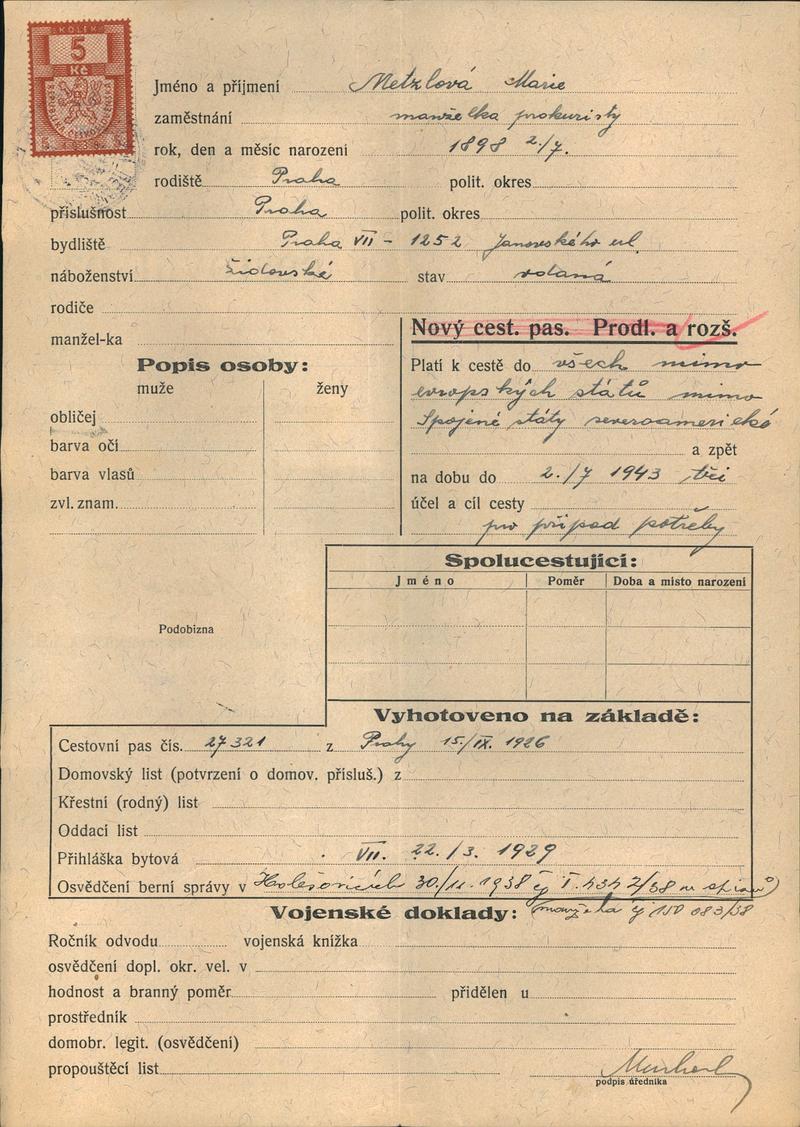 KOLEK
5
Kč
Jméno a příjmení Metzlová Marie
zaměstnání manželka prokuristy
rok, den a měsíc narození 1898 2./7.
rodiště Praha polit. okres
příslušnost Praha polit. okres
bydliště Praha VII - 1252 Janovského ul.
náboženství židovské stav vdaná
rodiče
manžel-ka
Nový cest. pas. Prodl. a rozš.
Popis osoby:
muže ženy
obličej
barva očí
barva vlasů
zvl. znam.
Platí k cestě do všech mimo
evropských států mimo
Spojené státy severoamerické
a zpět
na dobu do 2./7 1943 tři
účel a cíl cesty
pro případ potřeby
Spolucestující:
Jméno Poměr Doba a misto narození
Podobizna
Vyhotoveno na základě:
Cestovní pas čís. 27321 z Prahy 15./IX. 1926
Domovský list (potvrzení o domov. přísluš.) z
Křestní (rodný) list
Oddací list
Přihláška bytová VII. 22./3. 1929
Osvědčení berní správy v Holešovicích 30./11. 1938 čj
Vojenské doklady: manžela čj 150 083/38
Ročník odvodu vojenská knížka
osvědčení dopl. okr. vel. v
hodnost a branný poměr přidělen u
prostředník
domobr. legit. (osvědčení)
propouštěcí list
podpis úředníka